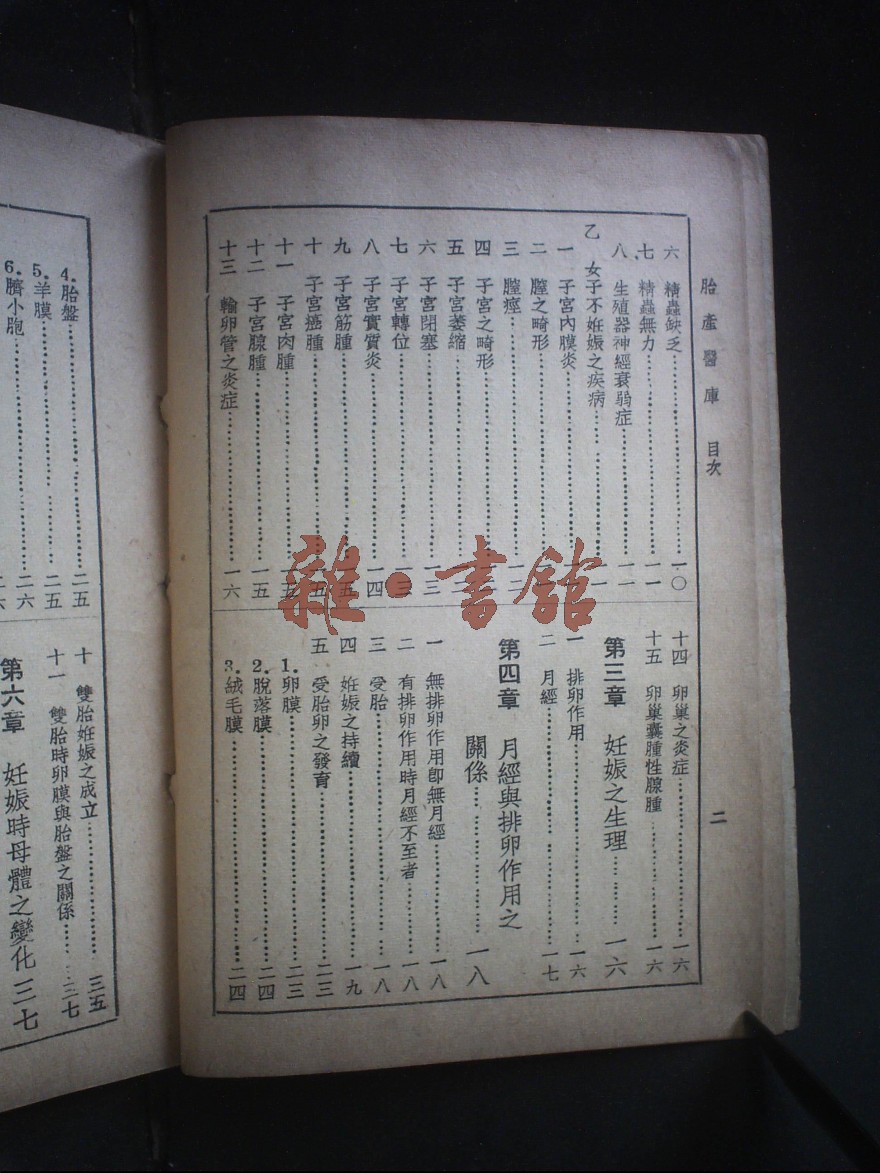 胎產醫庫　目次
二
六　精蟲缺乏…………一〇
七　精蟲無力…………一一
八　生殖器神經衰弱症…………一一
乙　女子不妊娠之疾病…………
一　子宮內膜炎…………
二　膣之畸形…………
三　膣痙…………
四　子宮之畸形…………
五　子宮萎縮…………
六　子宮閉塞…………一三
七　子宮轉位…………一三
八　子宮實質炎…………一四
九　子宮筋腫…………
十　子宮癌腫…………
十一　子宮肉腫…………
十二　子宮腺腫…………一五
十三　輸卵管之炎症…………一六
十四　卵巢之炎症…………一六
十五　卵巢囊腫性腺腫…………一六
第三章　妊娠之生理…………一六
一　排卵作用…………一六
二　月經…………一七
第四章　月經與排卵作用之
關係…………一八
一　無排卵作用卽無月經…………一八
二　有排卵作用時月經不至者…………一八
三　受胎…………一八
四　妊娠之持續…………一九
五　受胎卵之發育…………二三
1.卵膜…………二三
2.脫落膜…………二四
3.絨毛膜…………二四
4.胎盤…………二五
5.羊膜…………二五
6.臍小胞…………二六
十　雙胎妊娠之成立…………三五
十一　雙胎時卵膜與胎盤之關係…………三七
第六章　妊娠時母體之變化　三七
雜·書館